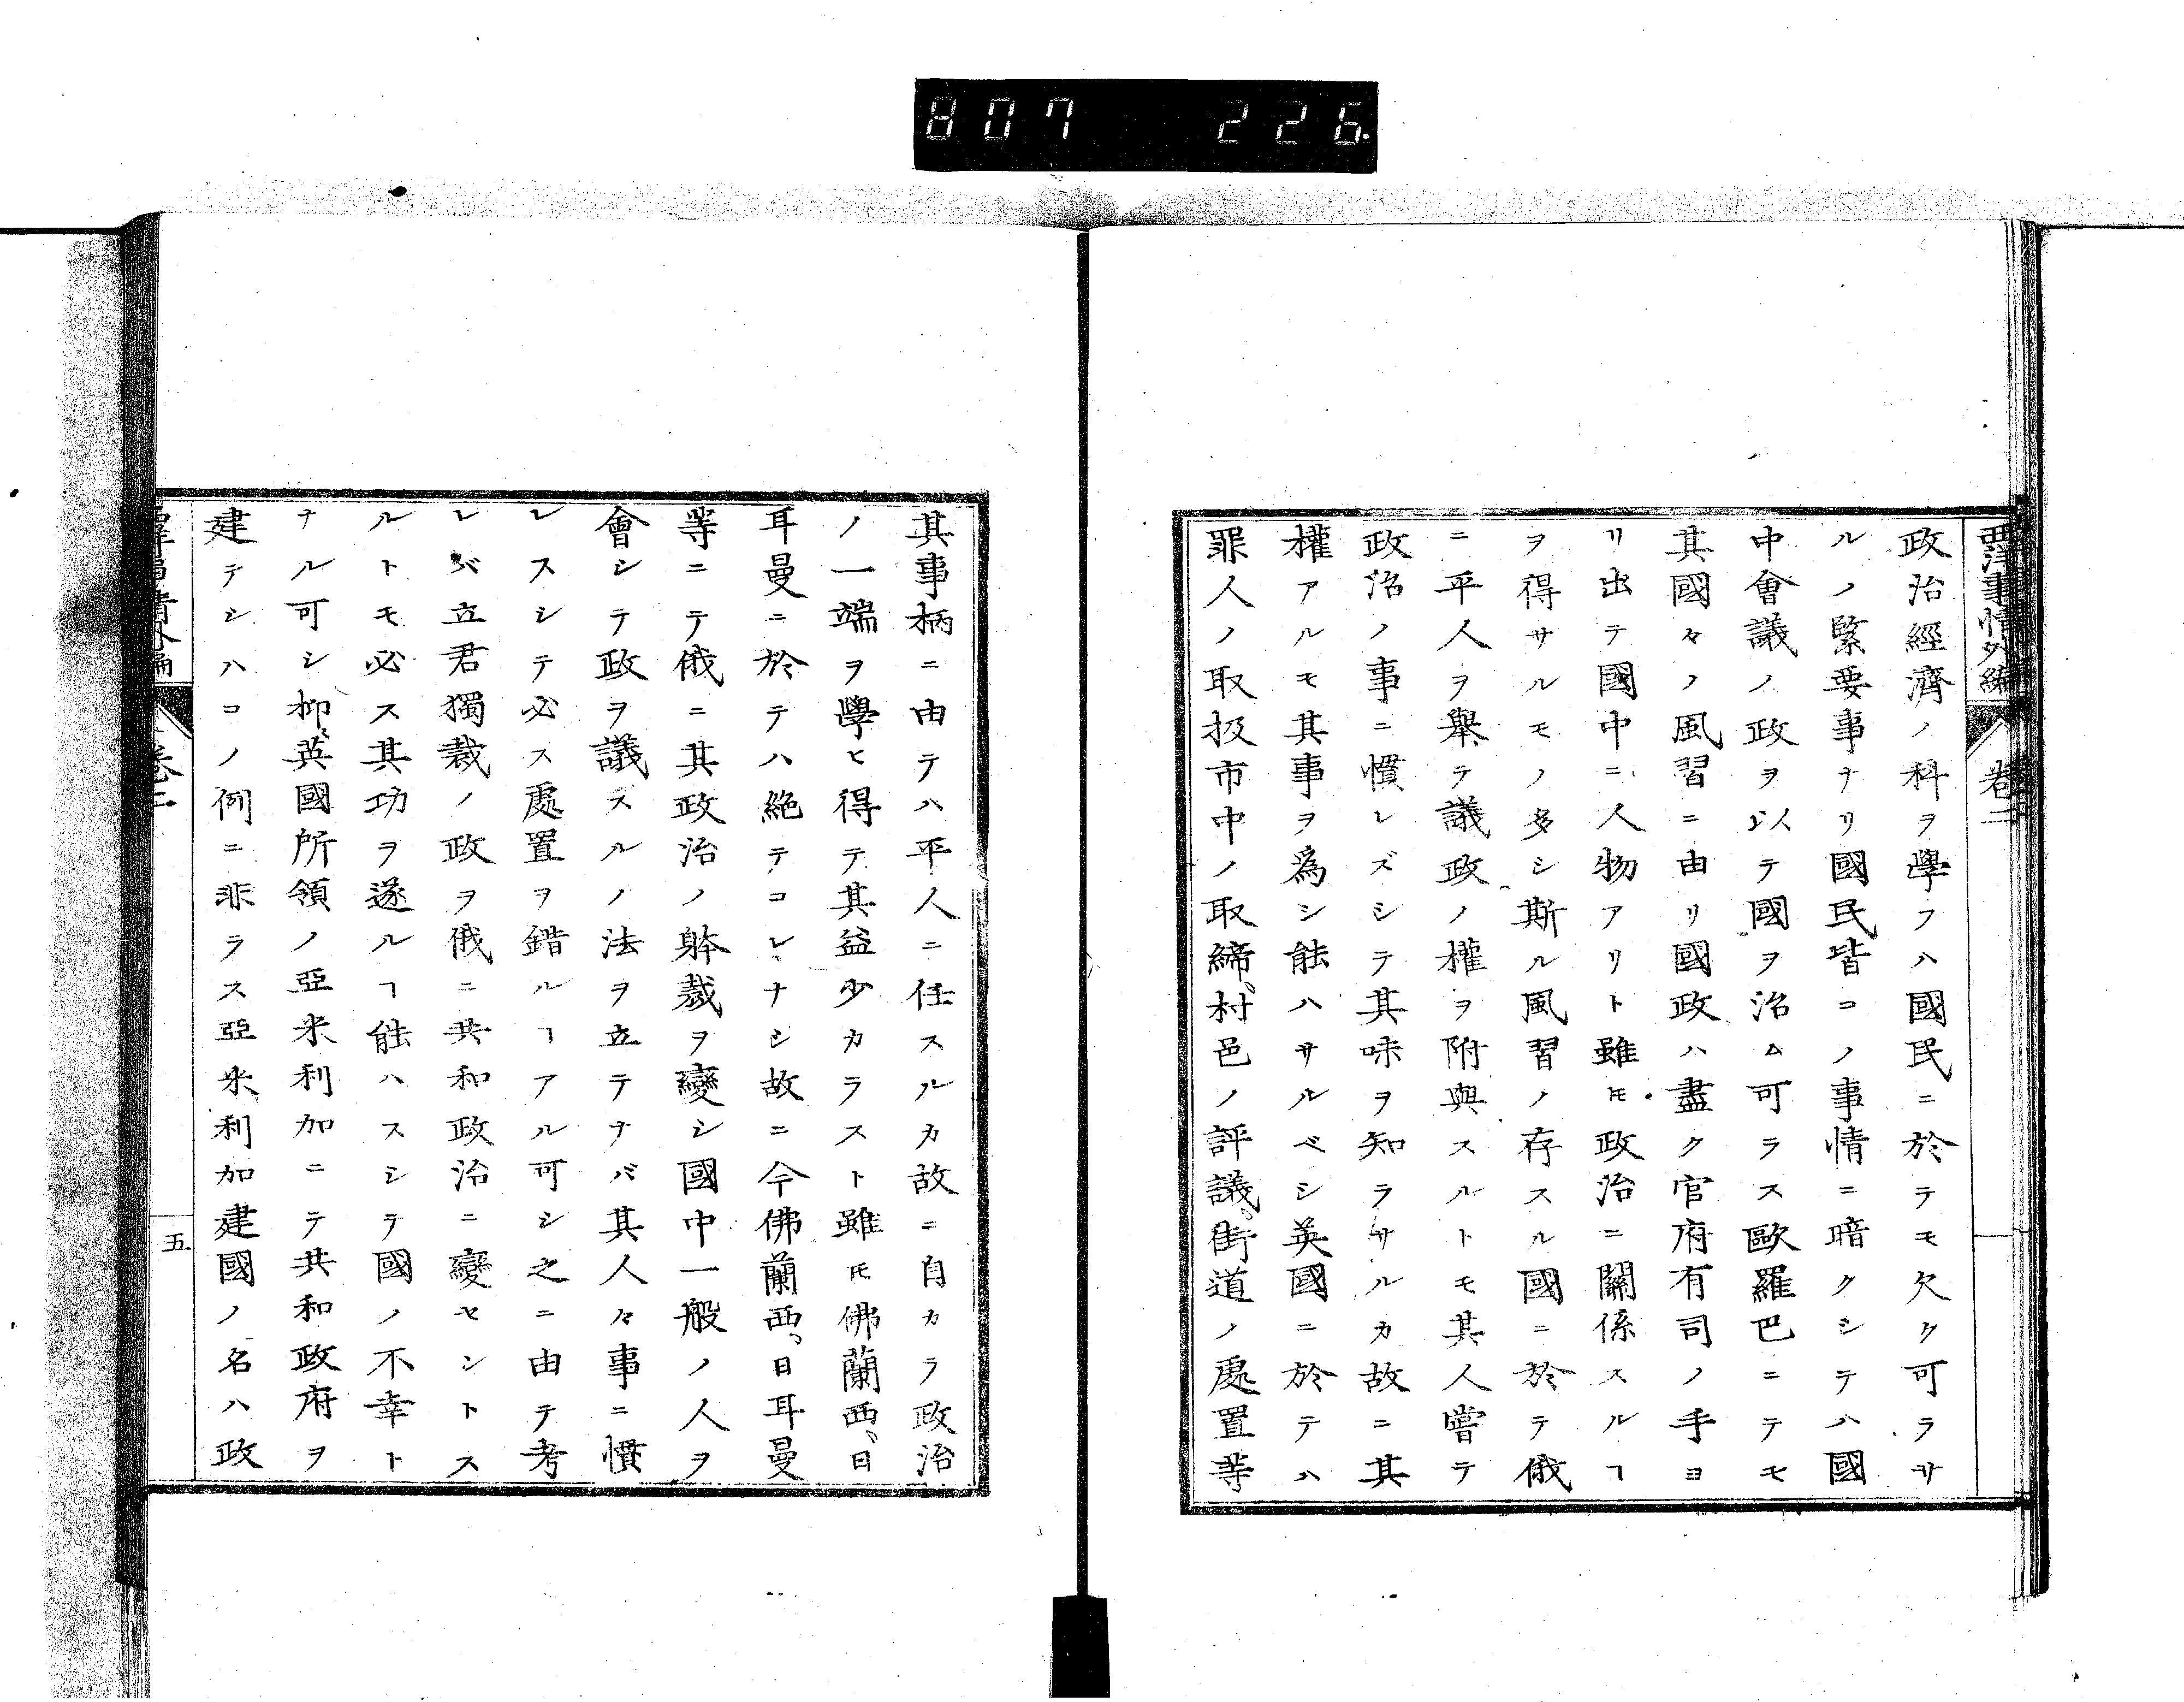 807 226
西洋事情外編 卷二
政治經濟ノ科ヲ學フハ國民ニ於テモ欠ク可ラサ
ルノ緊要事ナリ國民皆コノ事情ニ暗クシテハ國
中會議ノ政ヲ以テ國ヲ治ム可ラス歐羅巴ニテモ
其國々ノ風習ニ由リ國政ハ盡ク官府有司ノ手ヨ
リ出テ國中ニ人物アリト雖𪜈政治ニ關係スルヿ
ヲ得サルモノ多シ斯ル風習ノ存スル國ニ於テ俄
ニ平人ヲ舉テ議政ノ權ヲ附與スルトモ其人嘗テ
政治ノ事ニ慣レズシテ其味ヲ知ラサルカ故ニ其
權アルモ其事ヲ爲シ能ハサルベシ英國ニ於テハ
罪人ノ取扱市中ノ取締、村邑ノ評議、街道ノ處置等
其事柄ニ由テハ平人ニ任スルカ故ニ自カラ政治
ノ一端ヲ學ヒ得テ其益少カラスト雖𪜈佛蘭西、日
耳曼ニ於テハ絶テコレナシ故ニ今佛蘭西、日耳曼
等ニテ俄ニ其政治ノ躰裁ヲ變シ國中一般ノ人ヲ
會シテ政ヲ議スルノ法ヲ立テナバ其人々事ニ慣
レスシテ必ス處置ヲ錯ルヿアル可シ之ニ由テ考
レバ立君獨裁ノ政ヲ俄ニ共和政治ニ變セントス
ルトモ必ス其功ヲ遂ルヿ能ハスシテ國ノ不幸ト
ナル可シ抑〻英國所領ノ亞米利加ニテ共和政府ヲ
建テシハコノ例ニ非ラス亞米利加建國ノ名ハ政
卷二
五